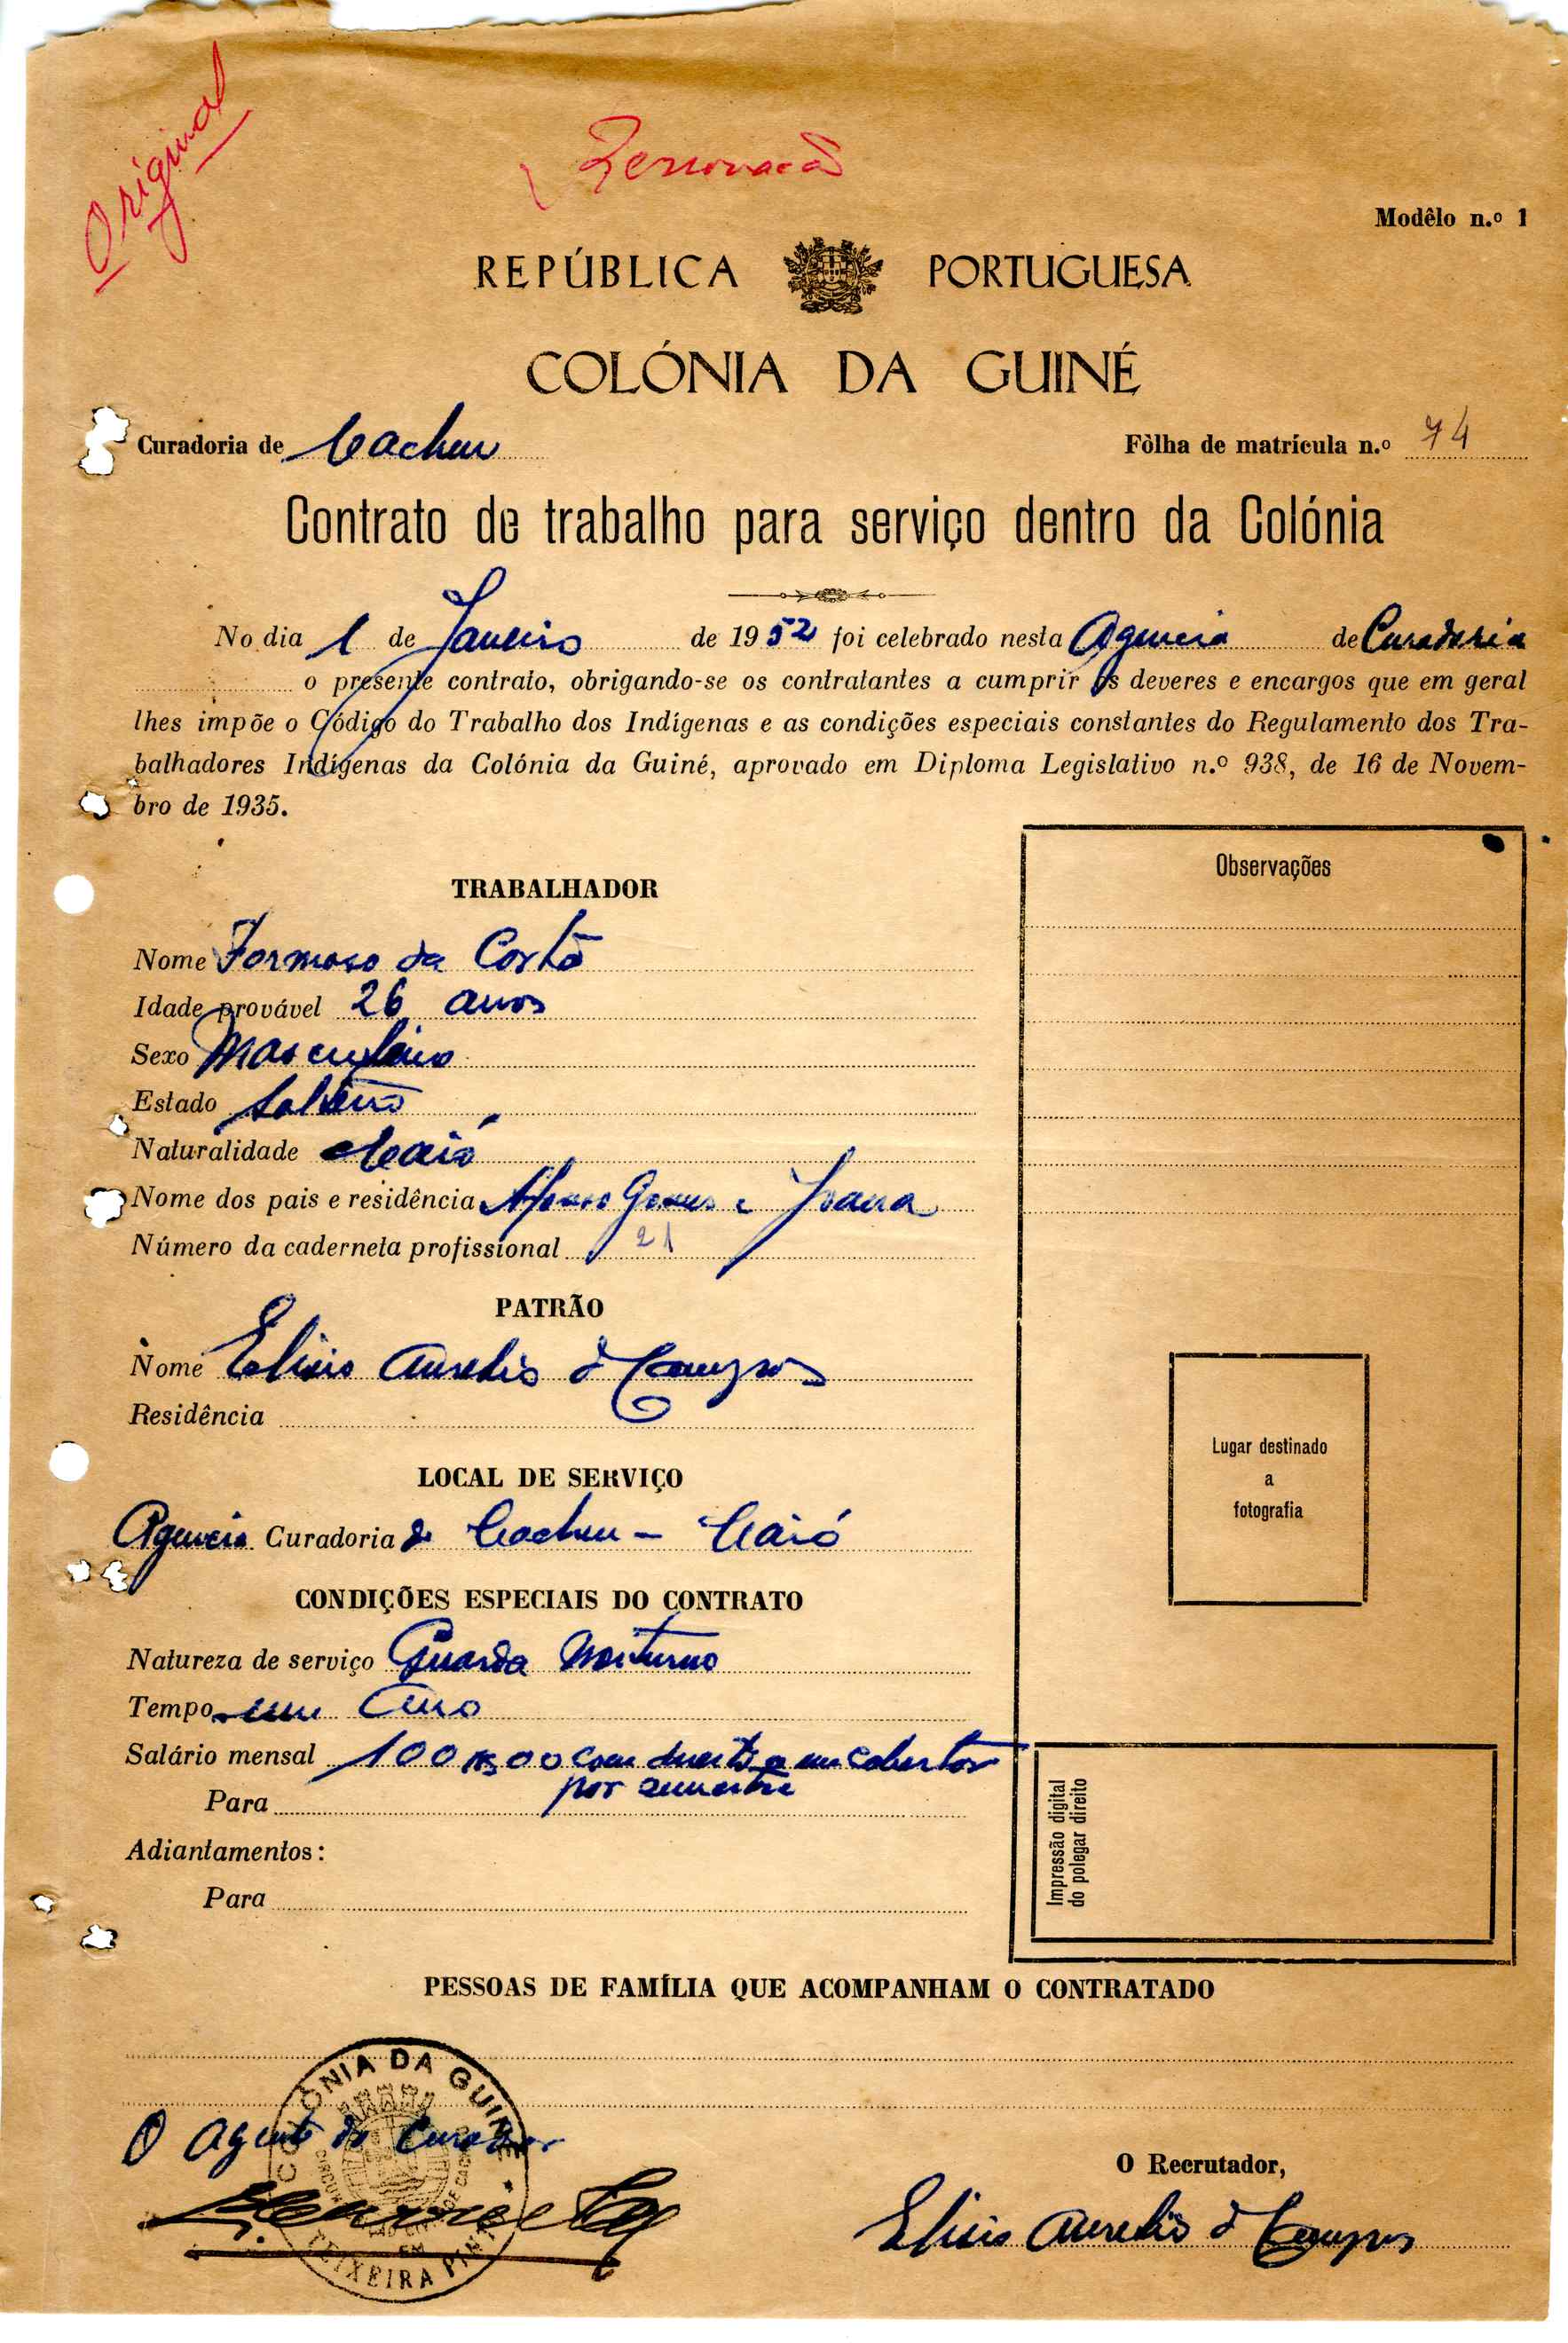 Original
Renovacã
Modêlo n.º 1
REPÚBLICA PORTUGUESA
COLÓNIA DA GUINÉ
Curadoria de Cacheu
Fôlha de matrícula n.º 74
Contrato de trabalho para serviço dentro da Colónia
No dia 1 de Janeiro de 1952 foi celebrado nesta Agencia de Curadoria
o presente contrato, obrigando-se os contratantes a cumprir os deveres e encargos que em geral
lhes impõe o Código do Trabalho dos Indígenas e as condições especiais constantes do Regulamento dos Tra-
balhadores Indígenas da Colónia da Guiné, aprovado em Diploma Legislativo n.º 938, de 16 de Novem-
bro de 1935.
Observações
TRABALHADOR
Nome Formoso da
Idade provável 26 anos
Sexo Masculino
Estado Solteiro
Naturalidade Caió
Nome dos pais e residência Afonso Gomes e Joana
Número da caderneta profissional 21
PATRÃO
Nome Elisio Aurelio d Campos
Residência
Lugar destinado
a
fotografia
LOCAL DE SERVIÇO
Agencia Curadoria de Cacheu - Caió
CONDIÇÕES ESPECIAIS DO CONTRATO
Natureza de serviço Guarda Nocturno
Tempo um Ano
Salário mensal 100$00 com direito a um cobertor
por semestre
Para
Adiantamentos:
Para
Impressão digital
do polegar direito
PESSOAS DE FAMÍLIA QUE ACOMPANHAM O CONTRATADO
COLÓNIA DA GUINÉ
EM
TEIXEIRA PINTO
O Agente do Curador
O Recrutador,
Elisio Aurelio d Campos